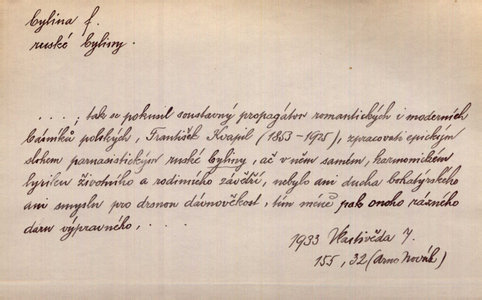 bylina f.
ruské byliny.
. . . .; tak se pokusil soustavný propagátor romantických i moderních
básníků polských, František Kvapil (1853-1925), zpracovati epickým
slohem parnasistickým ruské byliny, ač v něm samém, harmonickém
lyriku životního a rodinného závětří, nebylo ani ducha bohatýrského
ani smyslu pro drsnou dávnověkost, tím méně pak onoho rázného
daru výpravného, . . . .
1933 Vlastivěda 7.
155, 32 (Arne Novák)